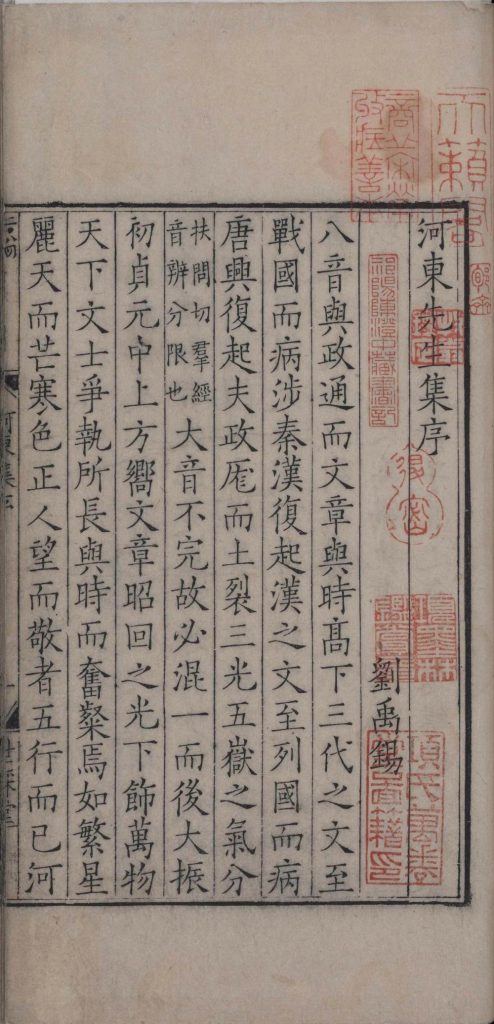 河東先生集序
劉禹錫
八音與政通而文章與時高下三代之文至
戰國而病涉秦漢復起漢之文至列國而病
唐興復起夫政厖而土裂三光五嶽之氣分
扶問切羣經
音辨分限也
大音不完故必混一而後大振
初貞元中上方嚮文章昭回之光下飾萬物
天下文士爭執所長與時而奮粲焉如繁星
麗天而芒寒色正人望而敬者五行而已河
項氏萬卷
祁陽陳澄中藏書記